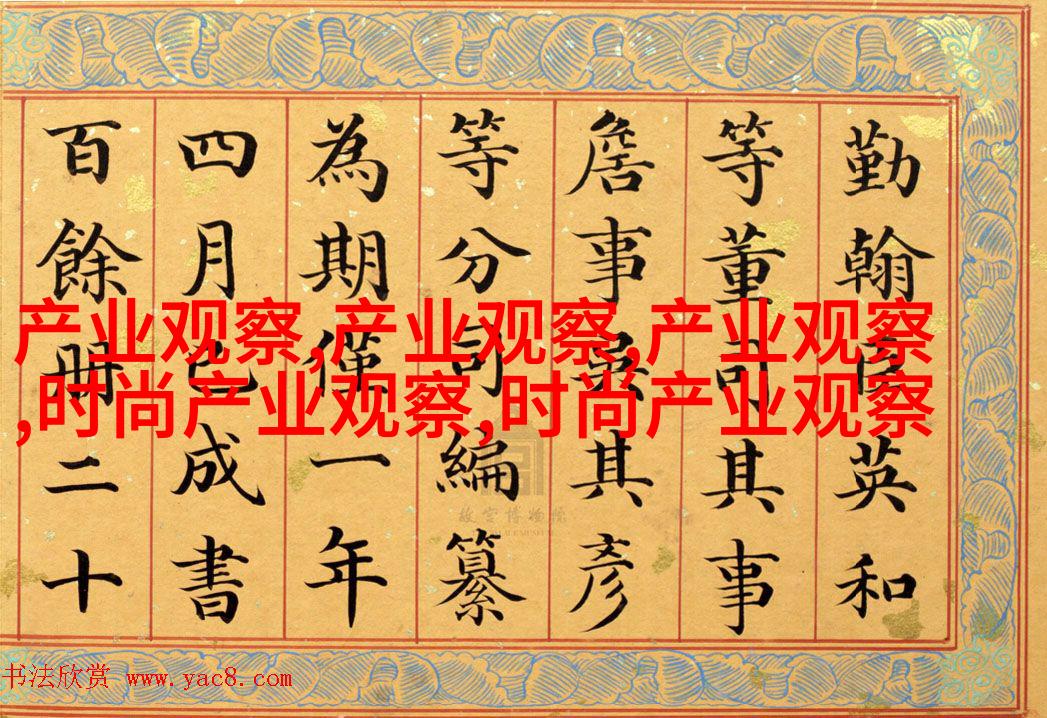 勤翰英和
等董司其事
詹事其彥
等分司編纂
為期僅一年
四月已成書
百餘冊二十
产业观察,产业观察,产业观察
,时尚产业观察,时尚产业观察
故宫博物院
书法欣赏 www.yac8.com